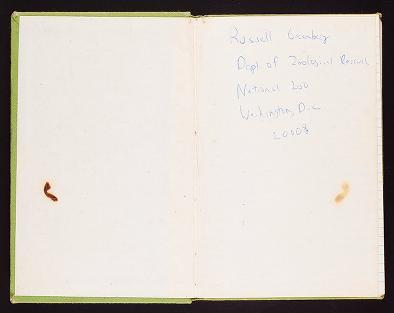 Russell Greenberg
Dept. of Zoological Research
National Zoo
Washington, D.C.
20008